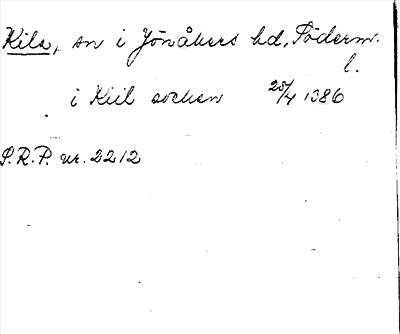 Kila, sn i Jönåkers hd, Söderm.
l.
i Kiil sochen 25/4 1386
S.R.P. nr. 2212